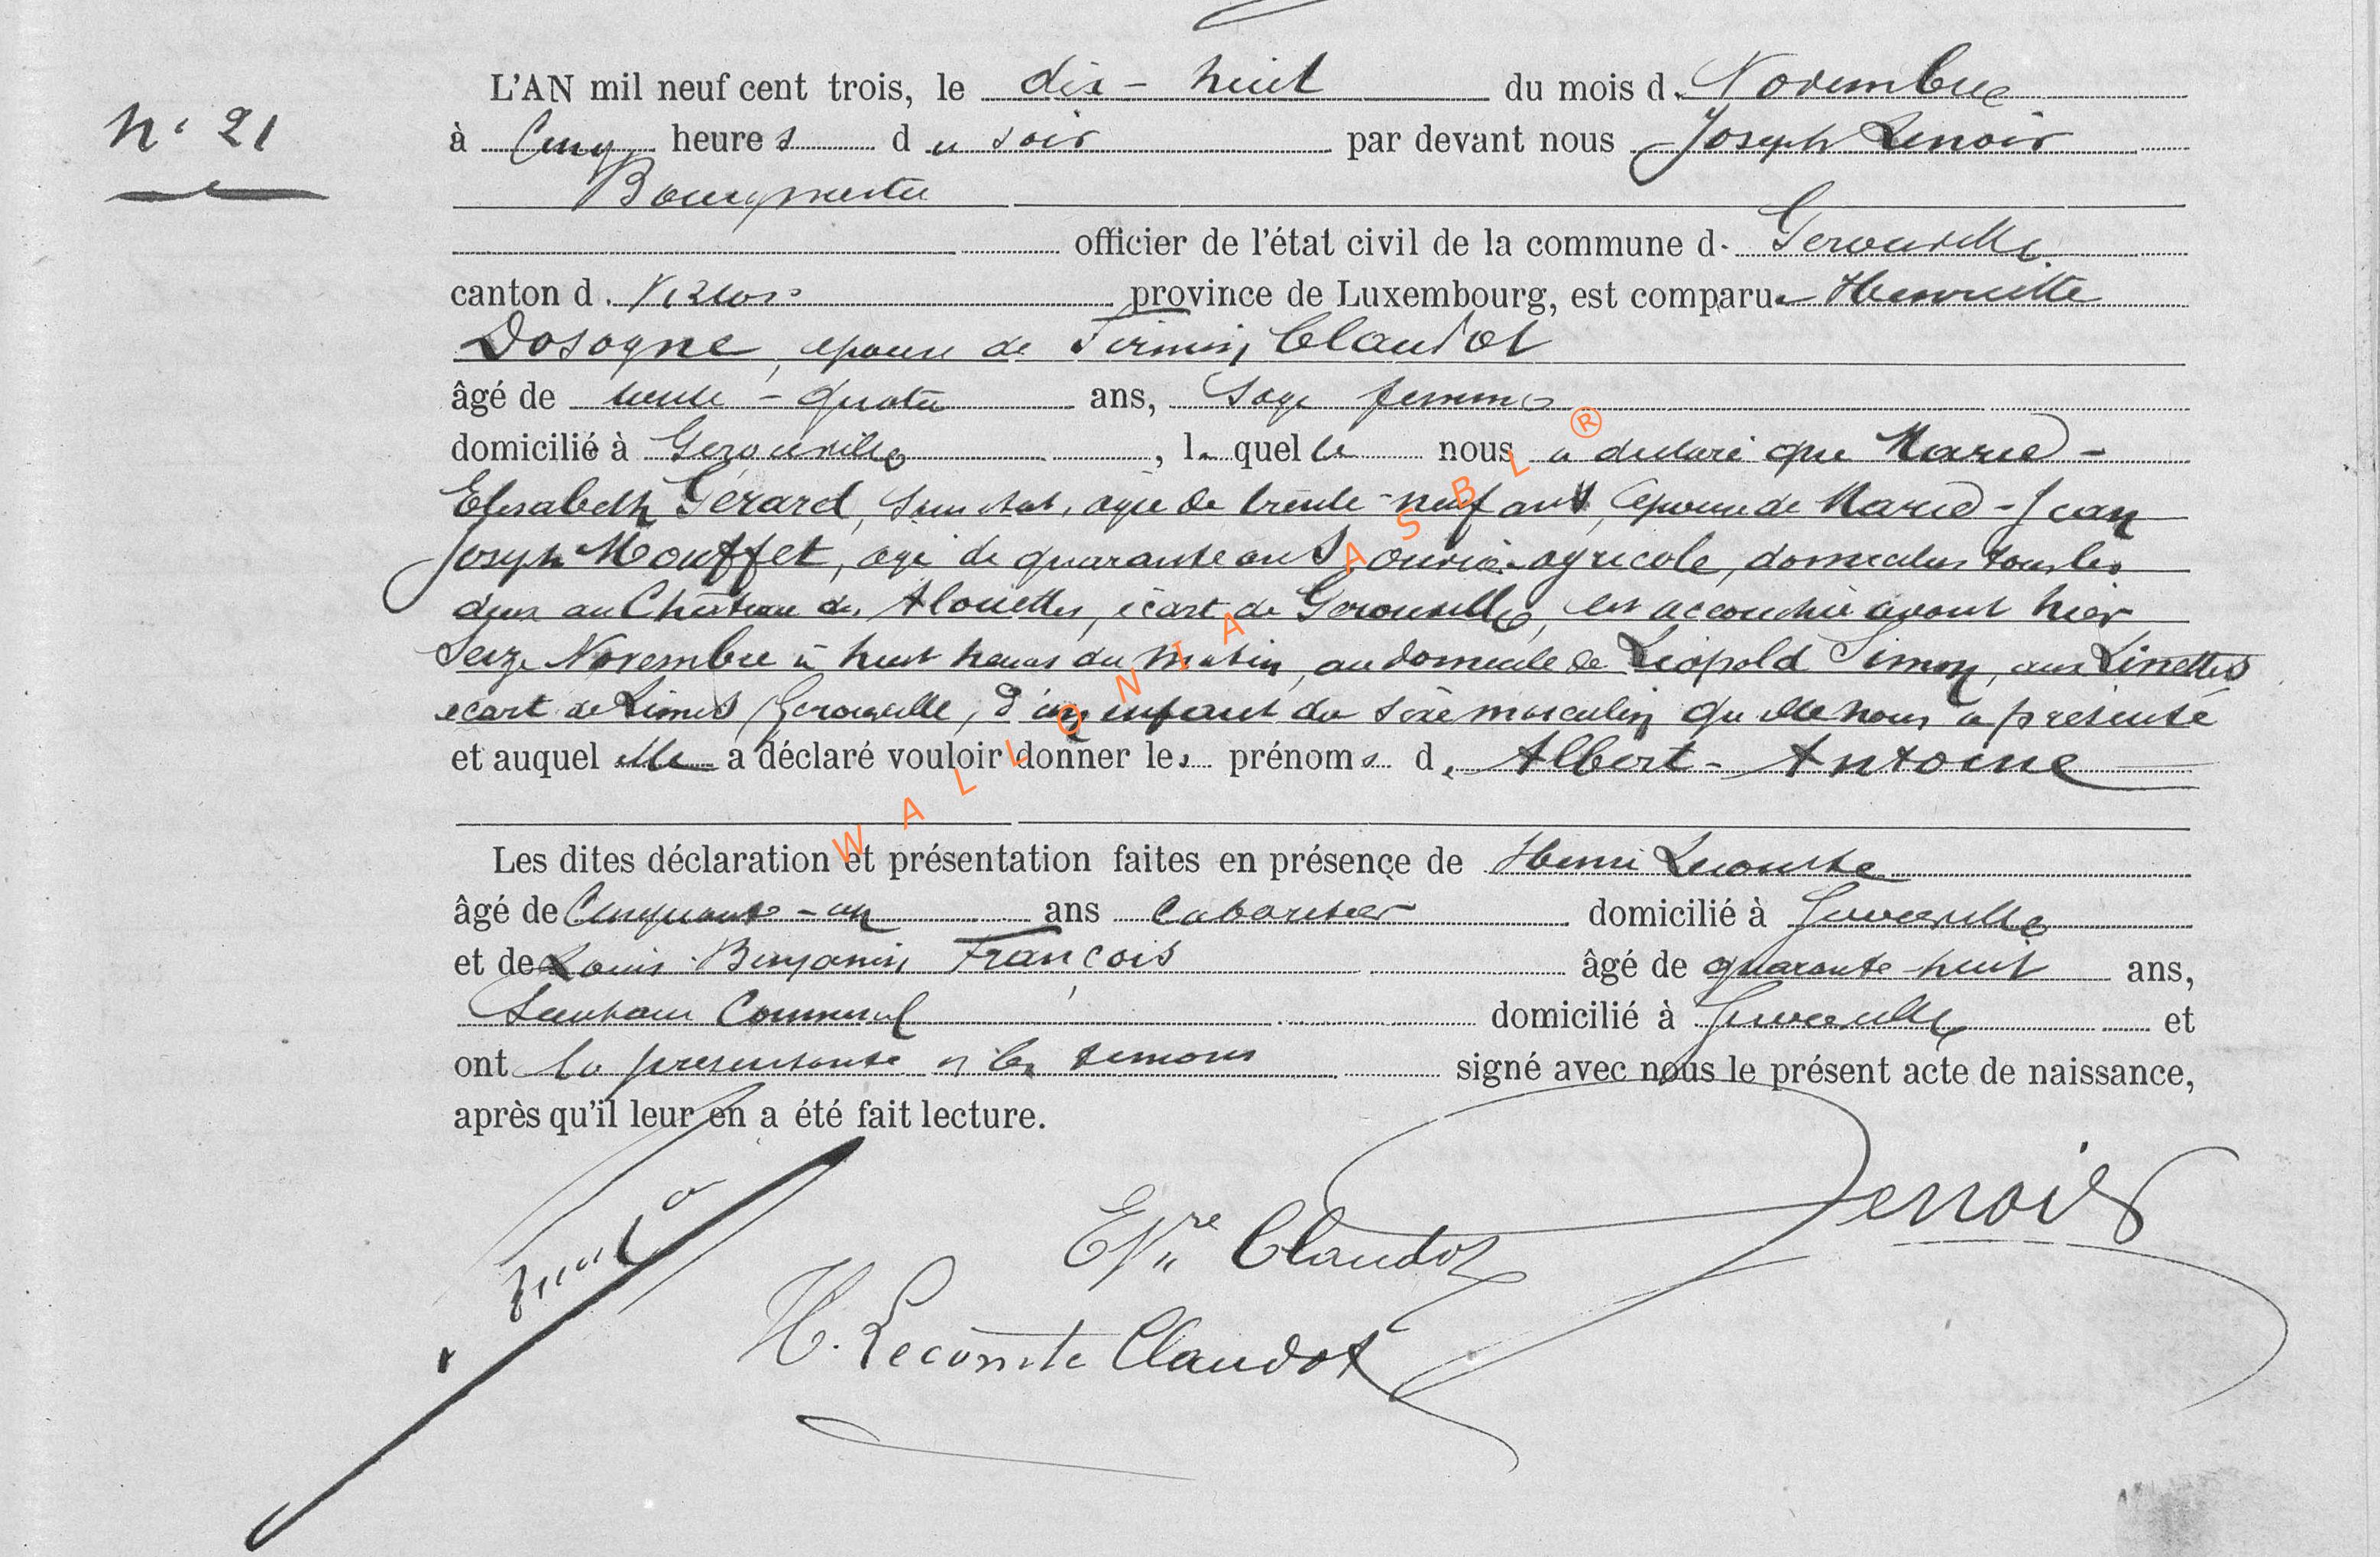 L'AN mil neuf cent trois, le dix-huit du mois de Novembre
N° 21
à Cinq heures du soir par devant nous Joseph Lenoir
Bourgmestre
officier de l'état civil de la commune de Gerouville
canton de Virton province de Luxembourg, est comparue Henriette
Dosogne, epouse de Firmin Claudot
âgé de trente-quatre ans, Sage femme
domicilié à Gerouville, laquelle nous a declaré que Marie-
Elisabeth Gérard, Sans état, agée de trente-neuf ans, épouse de Marie-Jean
Joseph Mouffet, agé de quarante ans, ouvrier agricole, domiciliés tous les
deux au Château des Alouettes, écart de Gerouville, est accouchée avant hier
Seize Novembre à huit heures du matin, au domicile de Léopold Simon, aux Linettes
écart de Limes (Gerouville), d'un enfant du sexe masculin qu'elle nous a présenté
et auquel elle a déclaré vouloir donner les prénoms d'Albert-Antoine
Les dites déclaration et présentation faites en présence de Henri Lecomte
âgé de Cinquante-un ans cabaretier domicilié à Gerouville
et de Louis Benjamin François âgé de quarante huit ans,
Secrétaire Communal domicilié à Gerouville et
ont la présentante et les témoins signé avec nous le présent acte de naissance,
après qu'il leur en a été fait lecture.
Lenoir
Claudot
H. Lecomte Claudot
WALLONIA ASBL ®